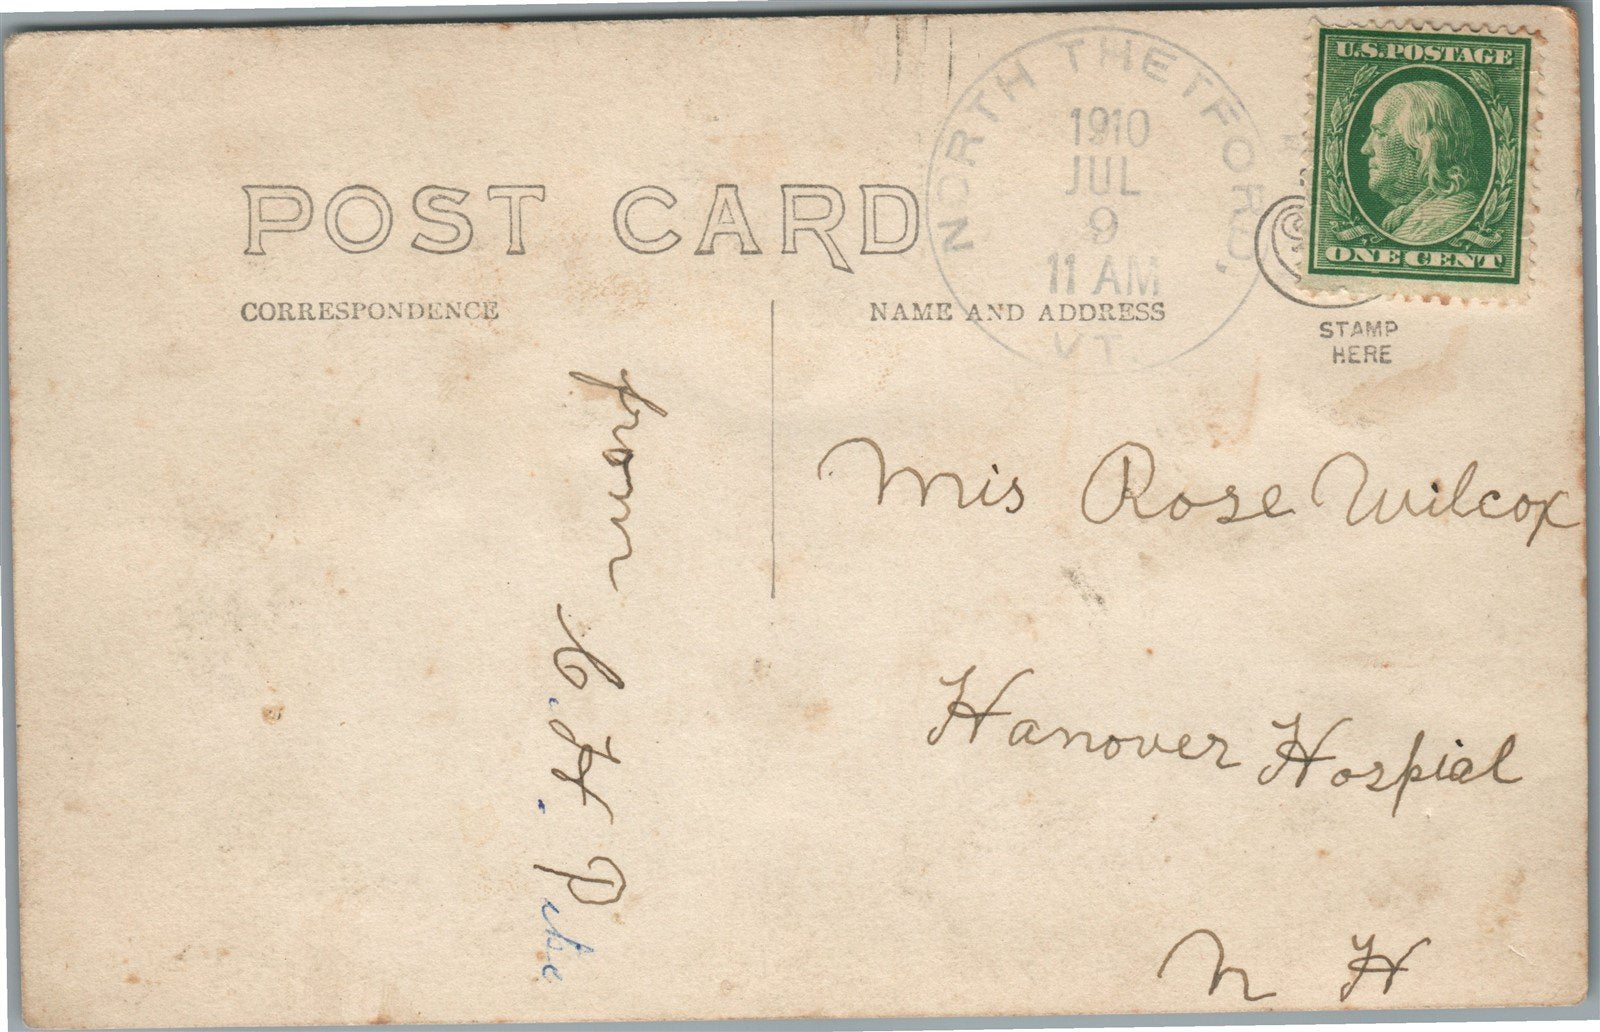 U.S.POSTAGE
ONE CENT
NORTH THETFORD,
1910
JUL
9
11 AM
VT.
POST CARD
CORRESPONDENCE
NAME AND ADDRESS
STAMP
HERE
from C. H. P
Mis Rose Wilcox
Hanover Hospial
N H